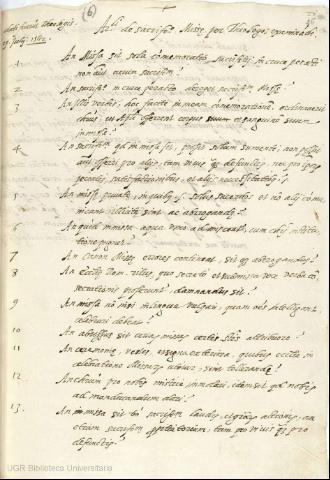 (6)
Arli. de sacrifo. Missae per Theologos examinandi.
19. Julij. 1562.
1 An Missa sit sola comemoratio sacrificij in cruce peracti
non aut. verum sacrifm.?
2 An sacrifm. in cruce peracto deroget sacrifm. Missae?
3 An illis verbis, hoc facite in meam comemorationem, ordinaverit
christus, ut Apli offerrent corpus suum et sanguinem suum
in missa?
4 An sacrifm. qd in missa fit, prosit solum sumenti, non possit
aut. offerri pro alijs, tam vivis quam defunctis, nec pro ipsorum
peccatis, satisfactionibus, et alijs necessitatibus?
5 An missae privatae, in quibus solus sacerdos et no alij comu-
nicant, illicitae sint ac abrogandae?
6 An quod in missa aqua vino admisceatur, cum christi institu-
tione pugnet?
7 An Canon Missae errores contineat, sit que abrogandus?
8 An Ecclae Rom. ritus, quo secreto et submissa voce verba co-
secrationis proferunt, damnandus sit?
9 An missa no nisi in lingua vulgari, quam oes intelligant,
celebrari debeat?
10 An abusus sit certas missas certis sctis attribuere?
11 An ceremoniae, vestes, et signa externa, quibus ecclia in
celebratione Missarum utitur, sint tollenda?
12 An christum pro nobis mistice immolari, idem sit qd nobis
ad manducandum dari?
13. An missa sit tm sacrifm. laudis, et gratiarum actionis, an
etiam sacrifm. propitiatorium, tam pro vivis quam pro
defunctis?
UGR Biblioteca Universitaria